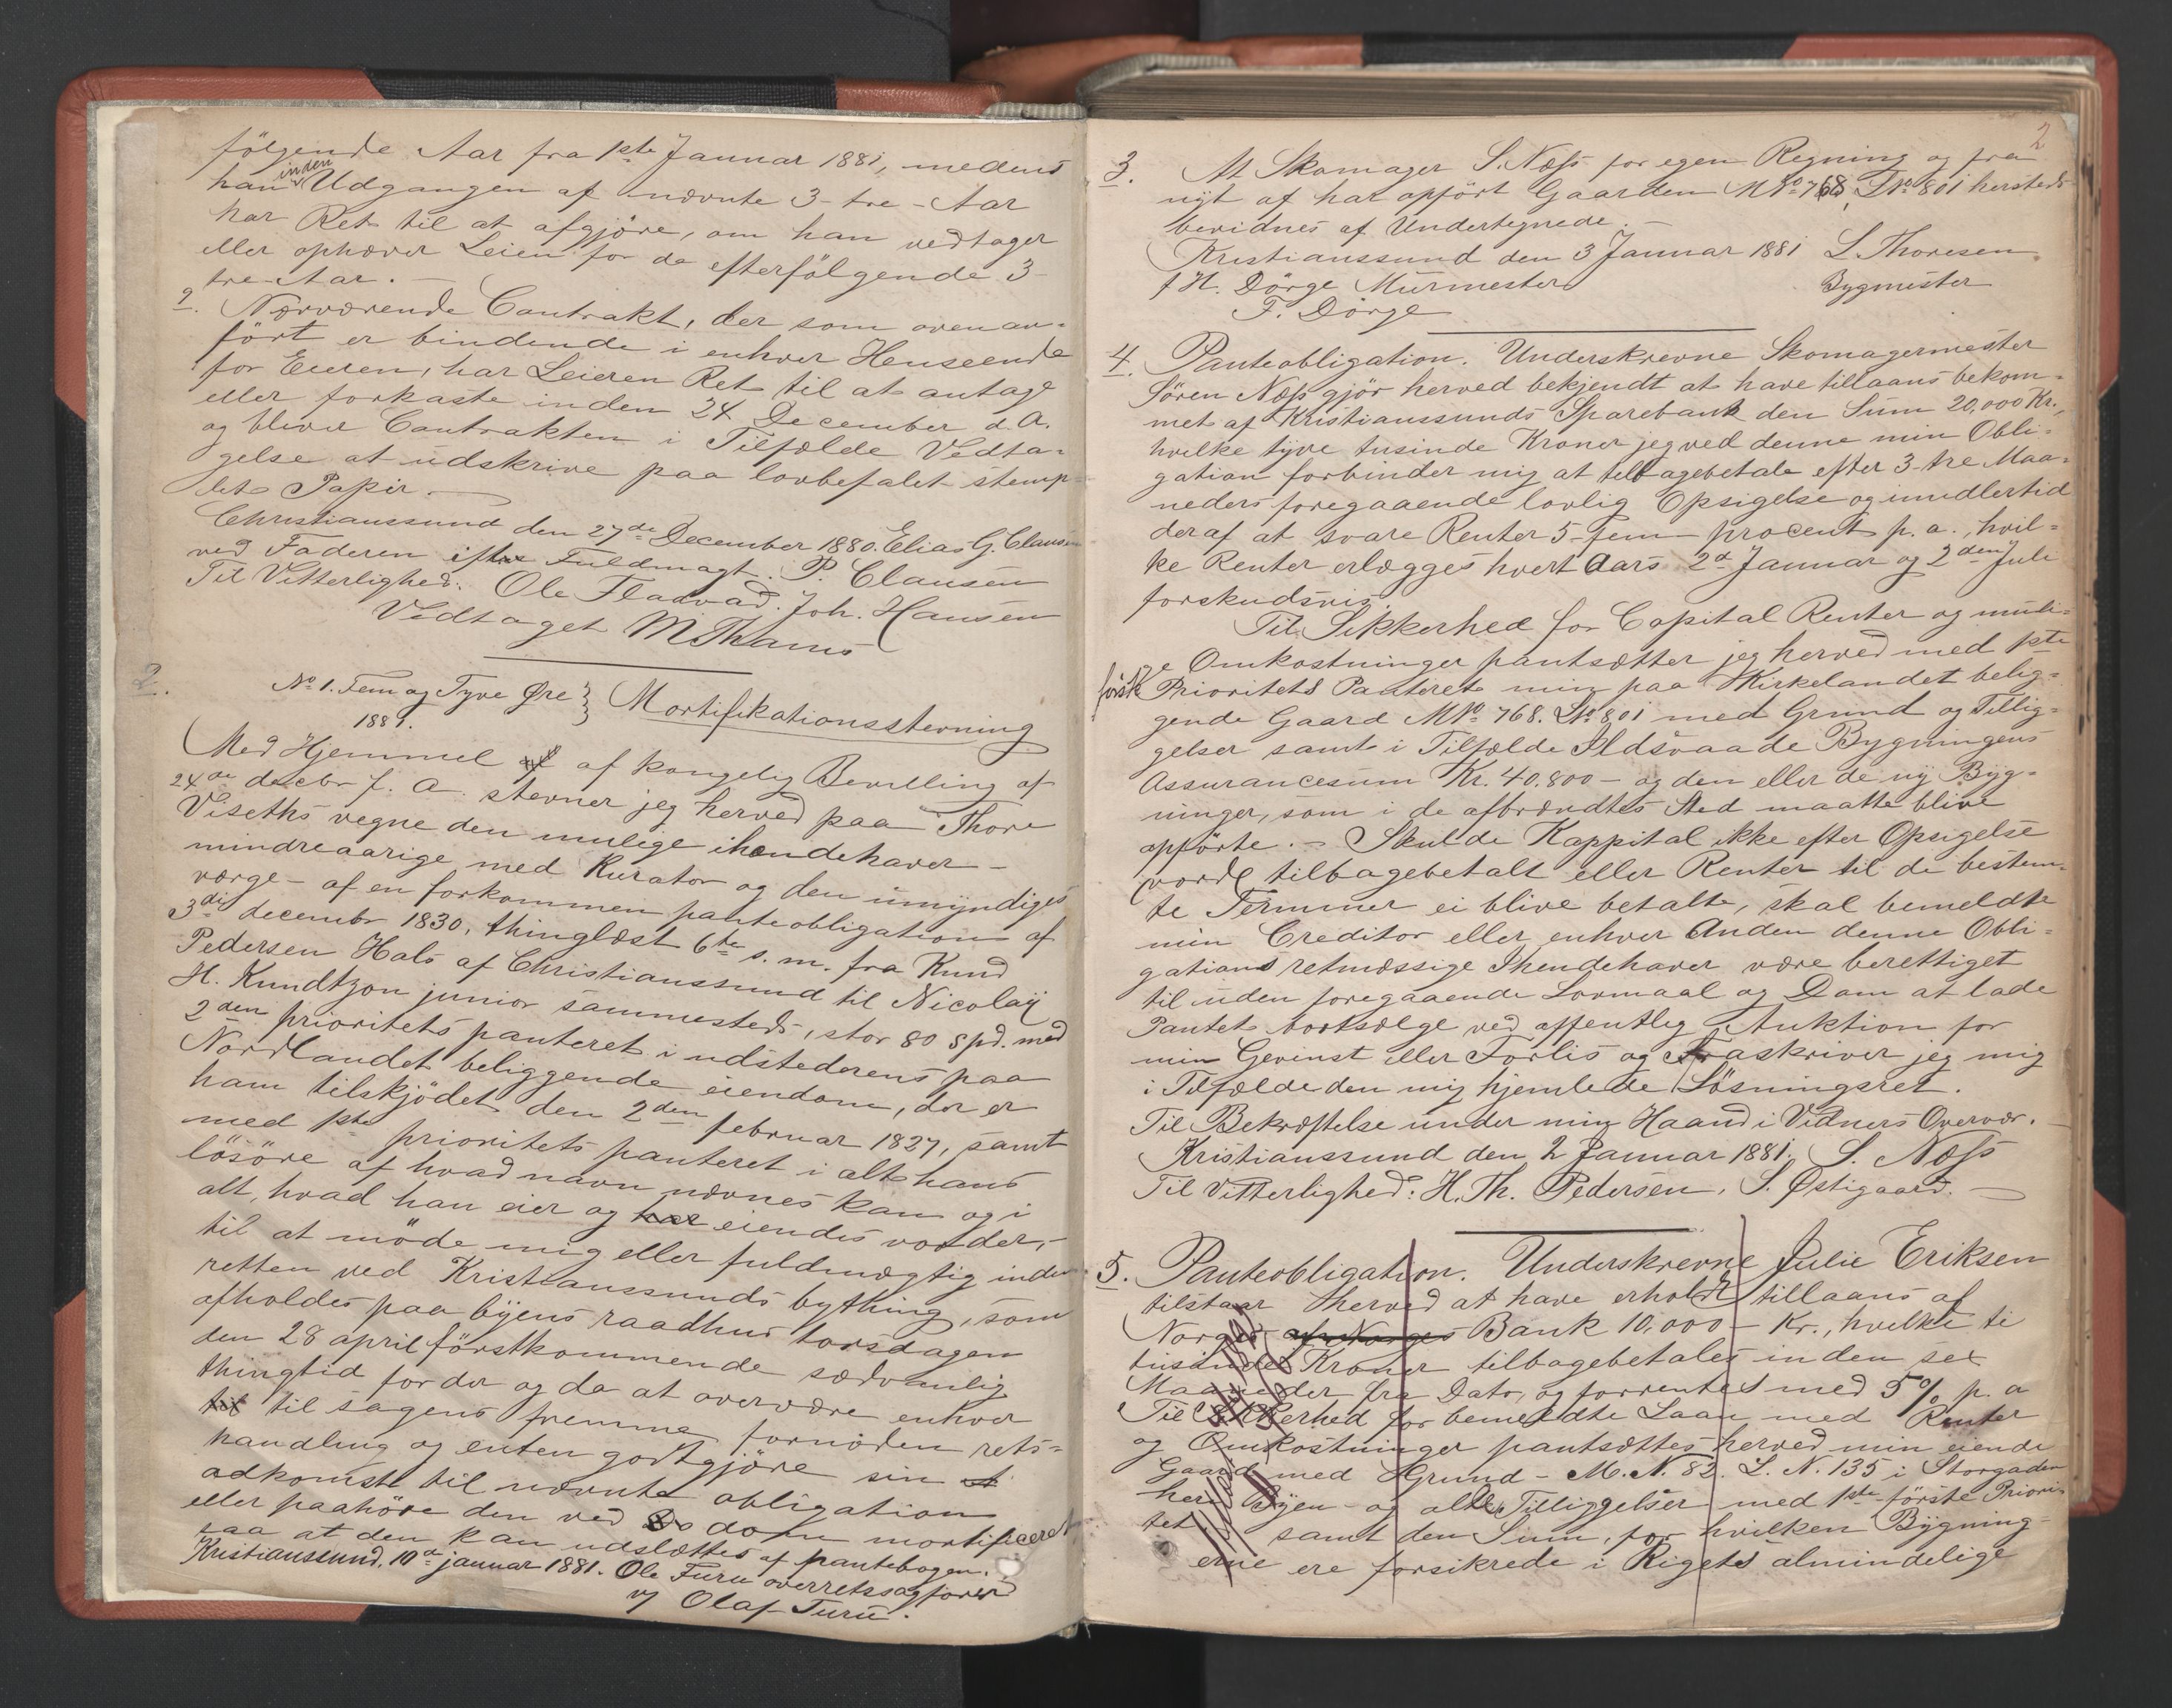 følgende Aar fra 1ste Januar 1881, medens
han inden Udgangen af nævnte 3-tre-Aar
har Ret til at afgjöre, om han vedtager
eller ophæver Leien for de efterfölgende 3
tre-Aar. —
9. Nærværende Contrakt, der som ovenan-
fört er bindende i enhver Henseende
for Eieren, har Leieren Ret til at antage
eller forkaste inden 24 December d. A.
og bliver Contrakten i Tilfælde Vedta-
gelse at udskrive paa lovbefalet stemp-
let Papir. —
Christianssund den 27de December 1880. Elias G. Clausen
ved Faderen efter Fuldmagt. P. Clausen
Til Vitterlighed. Ole Fladvad. Joh. Hansen
Vedtaget M Thams
2. No 1. Fem og Tyve Øre } Mortifikationsstevning
1881.
Med Hjemmel af kongelig Bevilling af
24de decbr f. A. stevner jeg herved paa Thore
Viseths vegne den mulige ihændehaver –
mindreaarige med Kurator og den umyndiges
værge – af en forkommen panteobligation af
3die decembr 1830, thinglæst 6te s. m. fra Knud
Pedersen Hals af Christianssund til Nicolaÿ
H. Knudtzon junior sammesteds, stor 80 spd. med
2den prioritets panteret i udstederens paa
Nordlandet beliggende eiendom, der er
ham tilskjödet den 2den februar 1827, samt
med 1ste prioritets panteret i alt hans
lösöre af hvad navn nævnes kan og i
alt, hvad han eier og har eiendes vorder, –
til at möde mig eller fuldmægtig inden
retten ved Kristianssunds bything, som
afholdes paa byens raadhus torsdagen
den 28 april förstkommende sædvanlig
thingtid for der og da at overvære enhver
til til sagens fremme fornöden rets-
handling og enten godtgjöre sin
adkomst til nævnte obligation
eller paahöre den ved Do dom mortificeret
saa at den kan udslættes af pantebogen.
Kristianssund, 10de januar 1881. Ole Furu overretssagförer
v/ Olaf Furu.
2
3. At Skomager S. Næss for egen Regning og fra
nyt af har opfört Gaarden M No 768, L No 801 hersteds
bevidnes af Undertegnede. —
Kristianssund den 3 Januar 1881 L. Thoresen
f H. Dörge Murmester Bygmester
F. Dörge
4. Panteobligation. Underskrevne Skomagermester
Sören Næss gjör herved bekjendt at have tillaans bekom-
met af Kristianssunds Sparebank den Sum 20,000 Kr.,
hvilke tyve tusinde Kroner jeg ved denne min Obli-
gation forbinder mig at tilbagebetale efter 3-tre Maa-
neders foregaaende lovlig Opsigelse og imidlertid
deraf at svare Renter 5-fem-procent p. a., hvil-
ke Renter erlægges hvert Aars 2d Januar og 2den Juli
forskudsvis.
Til Sikkerhed for Capital Renter og muli-
ge Omkostninger pantsætter jeg herved med 1ste
förste Prioritets Panteret min paa Kirkelandet belig-
gende Gaard M No 768. L No 801 med Grund og Tillig-
gelser samt i Tilfælde Ildsvaade Bygningens
Assurancesum Kr. 40.800 – og den eller de ny Byg-
ninger, som i de afbrændtes Sted maatte blive
opförte. – Skulde Kappital ikke efter Opsigelse
vorde tilbagebetalt eller Renter til de bestem-
te Terminer ei blive betalte, skal bemeldte
min Creditor eller enhver Anden denne Obli-
gations retmæssige Ihendehaver være berettiget
til uden foregaaende Lovmaal og Dom at lade
Pantet bortsælge ved offentlig Auktion for
min Gevinst eller Forlis og Fraskriver jeg mig
i Tilfælde den mig hjemlede Lösningsret.
Til Bekræftelse under min Haand i Vidners Overvær. –
Kristianssund den 2 Januar 1881. S. Næss
Til Vitterlighed: H. Th. Pedersen. S. Østigaard. —
5. Panteobligation. Underskrevne Julie Eriksen
tilstaar herved at have erholdt tillaans af
Norges af Norges Bank 10,000 – Kr., hvilke ti
tusinde Kroner tilbagebetales inden sex
Maaneder fra Dato, og forrentes med 5% p. a
Til Sikkerhed for bemeldte Laan med Renter
og Omkostninger pantsættes herved min eiende
Gaard med Grund – M. N. 82. L. N. 135 i Storgaden
her i Byen – og alle Tilliggelser med 1ste förste Priori-
tet samt den Sum, for hvilken Bygning-
erne ere forsikrede i Rigets almindelige